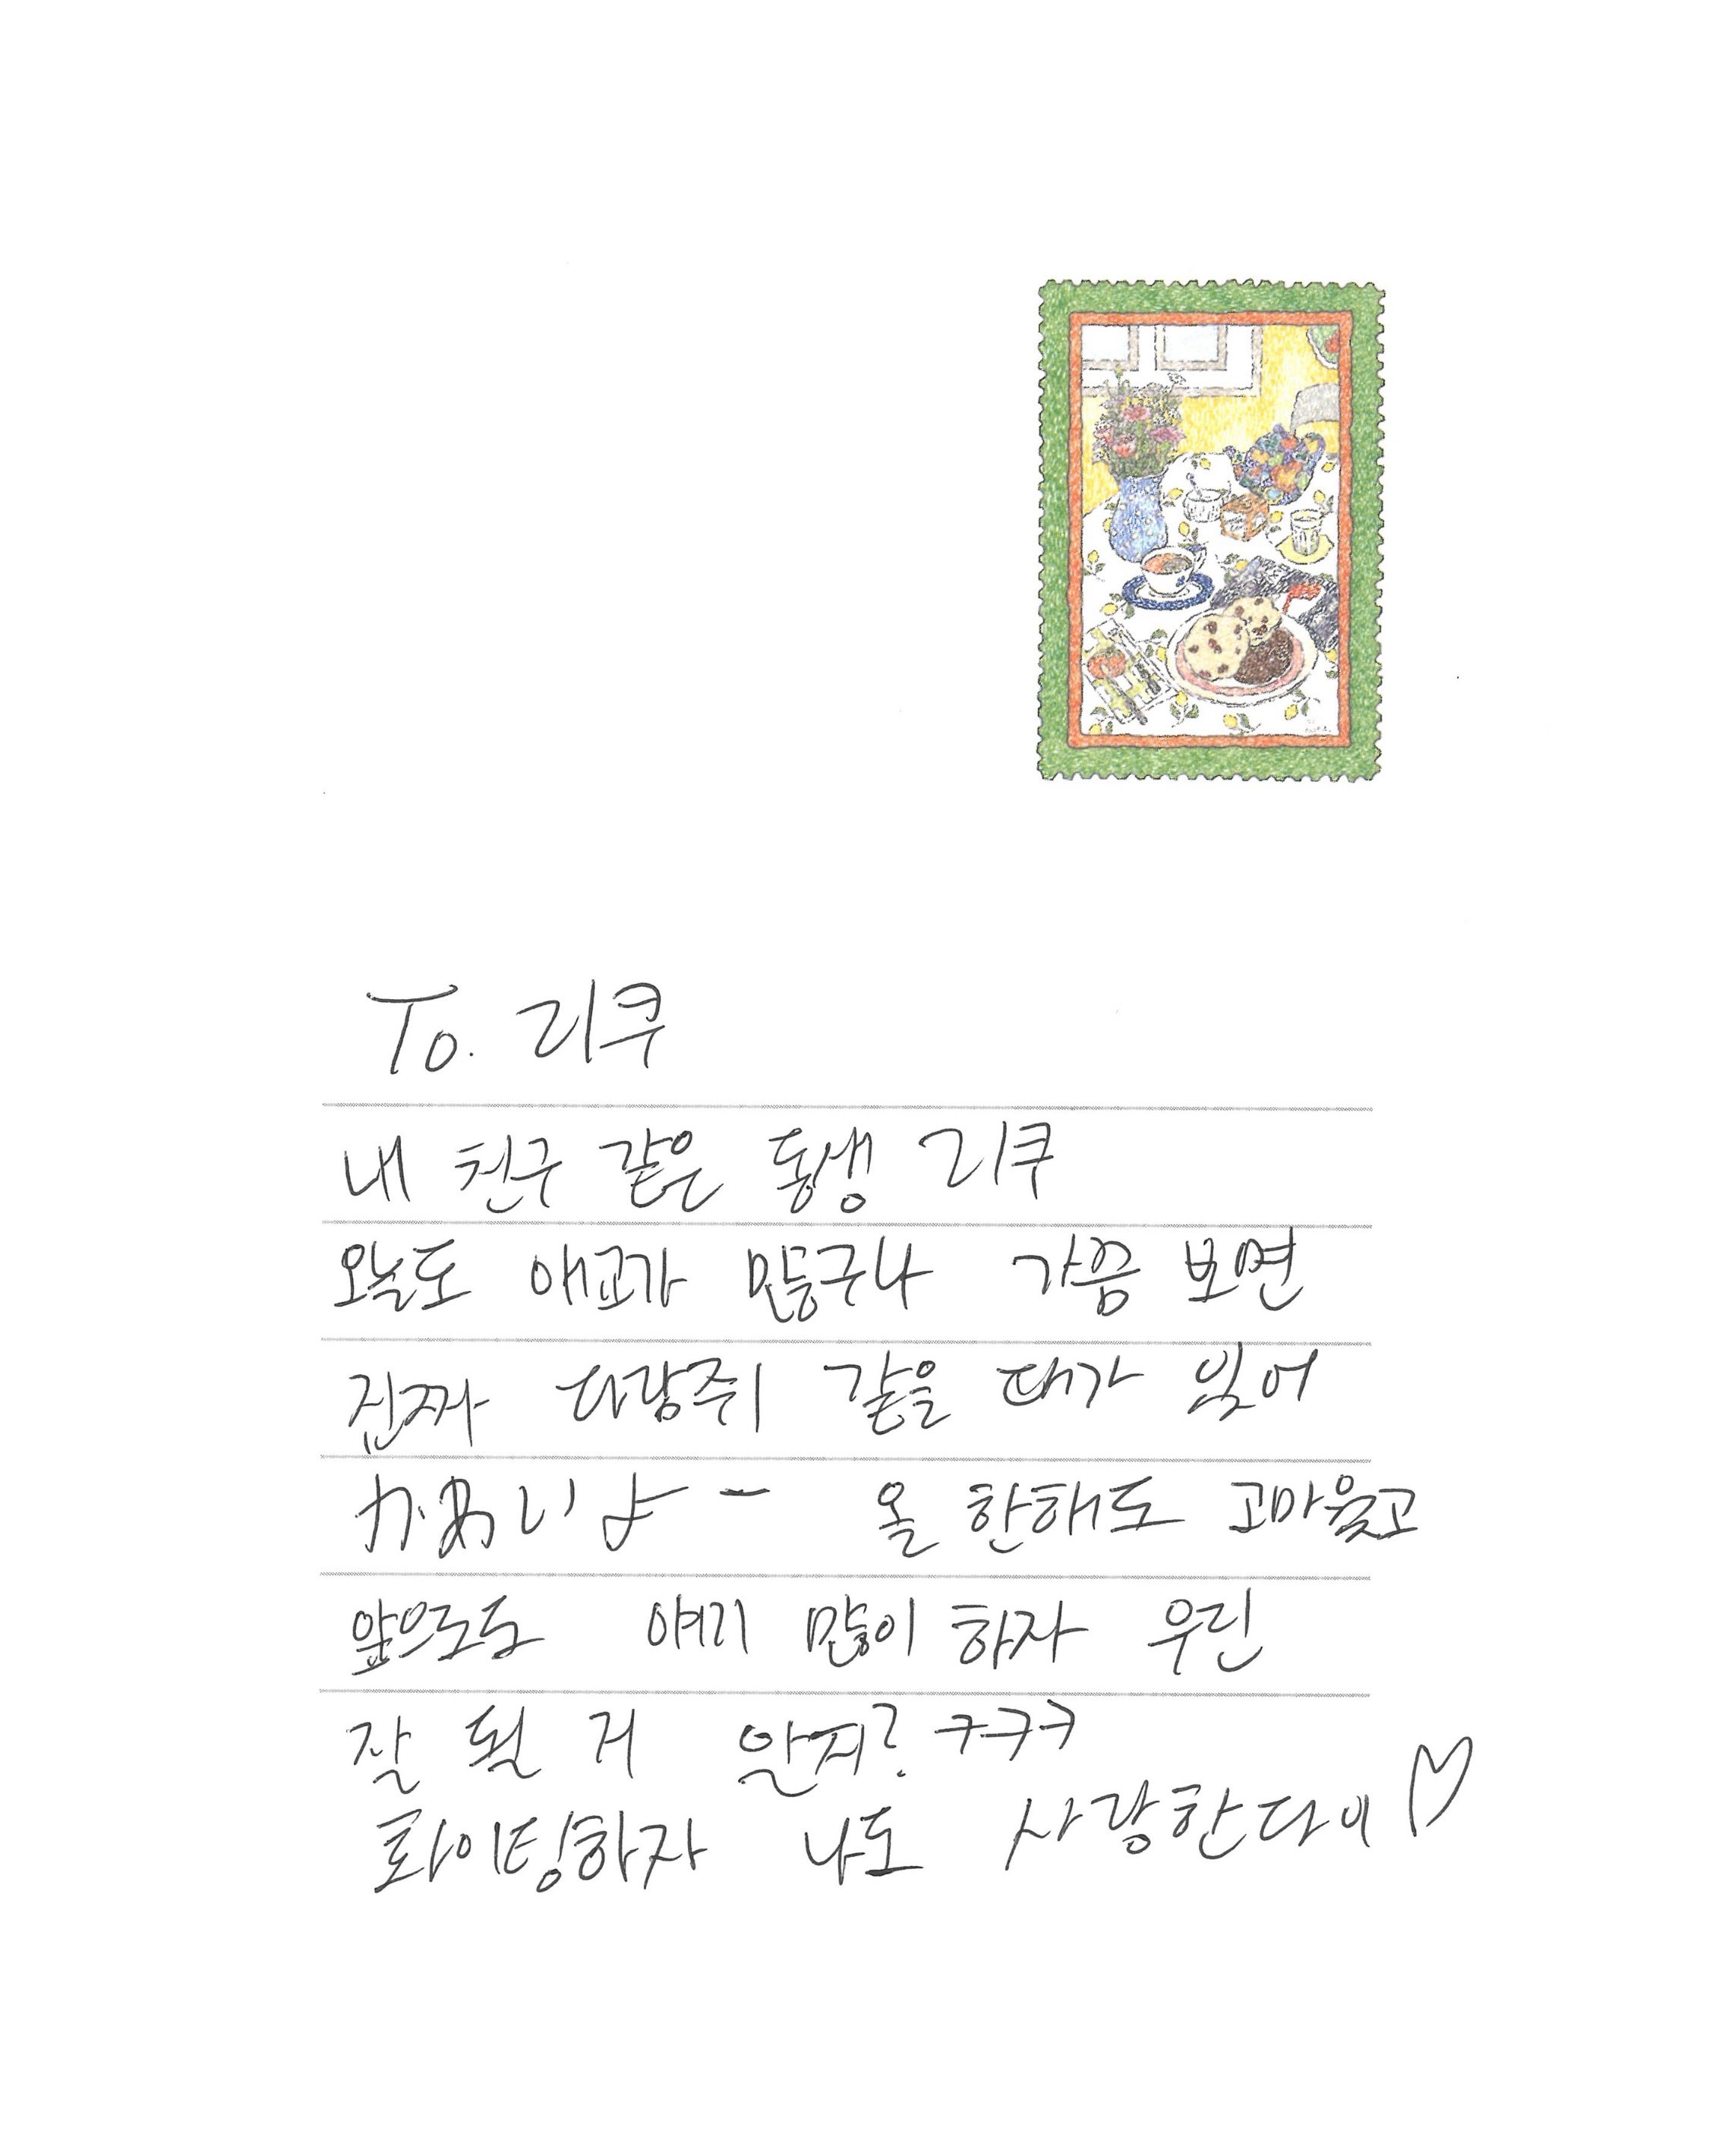 To. 리쿠
내 친구 같은 동생 리쿠
오늘도 애교가 많구나 가끔 보면
진짜 다람쥐 같을 때가 있어
かわいいよー 올 한해도 고마웠고
앞으로도 얘기 많이 하자 우린
잘 될 거 알지? ㅋㅋㅋ
화이팅하자 나도 사랑한다이